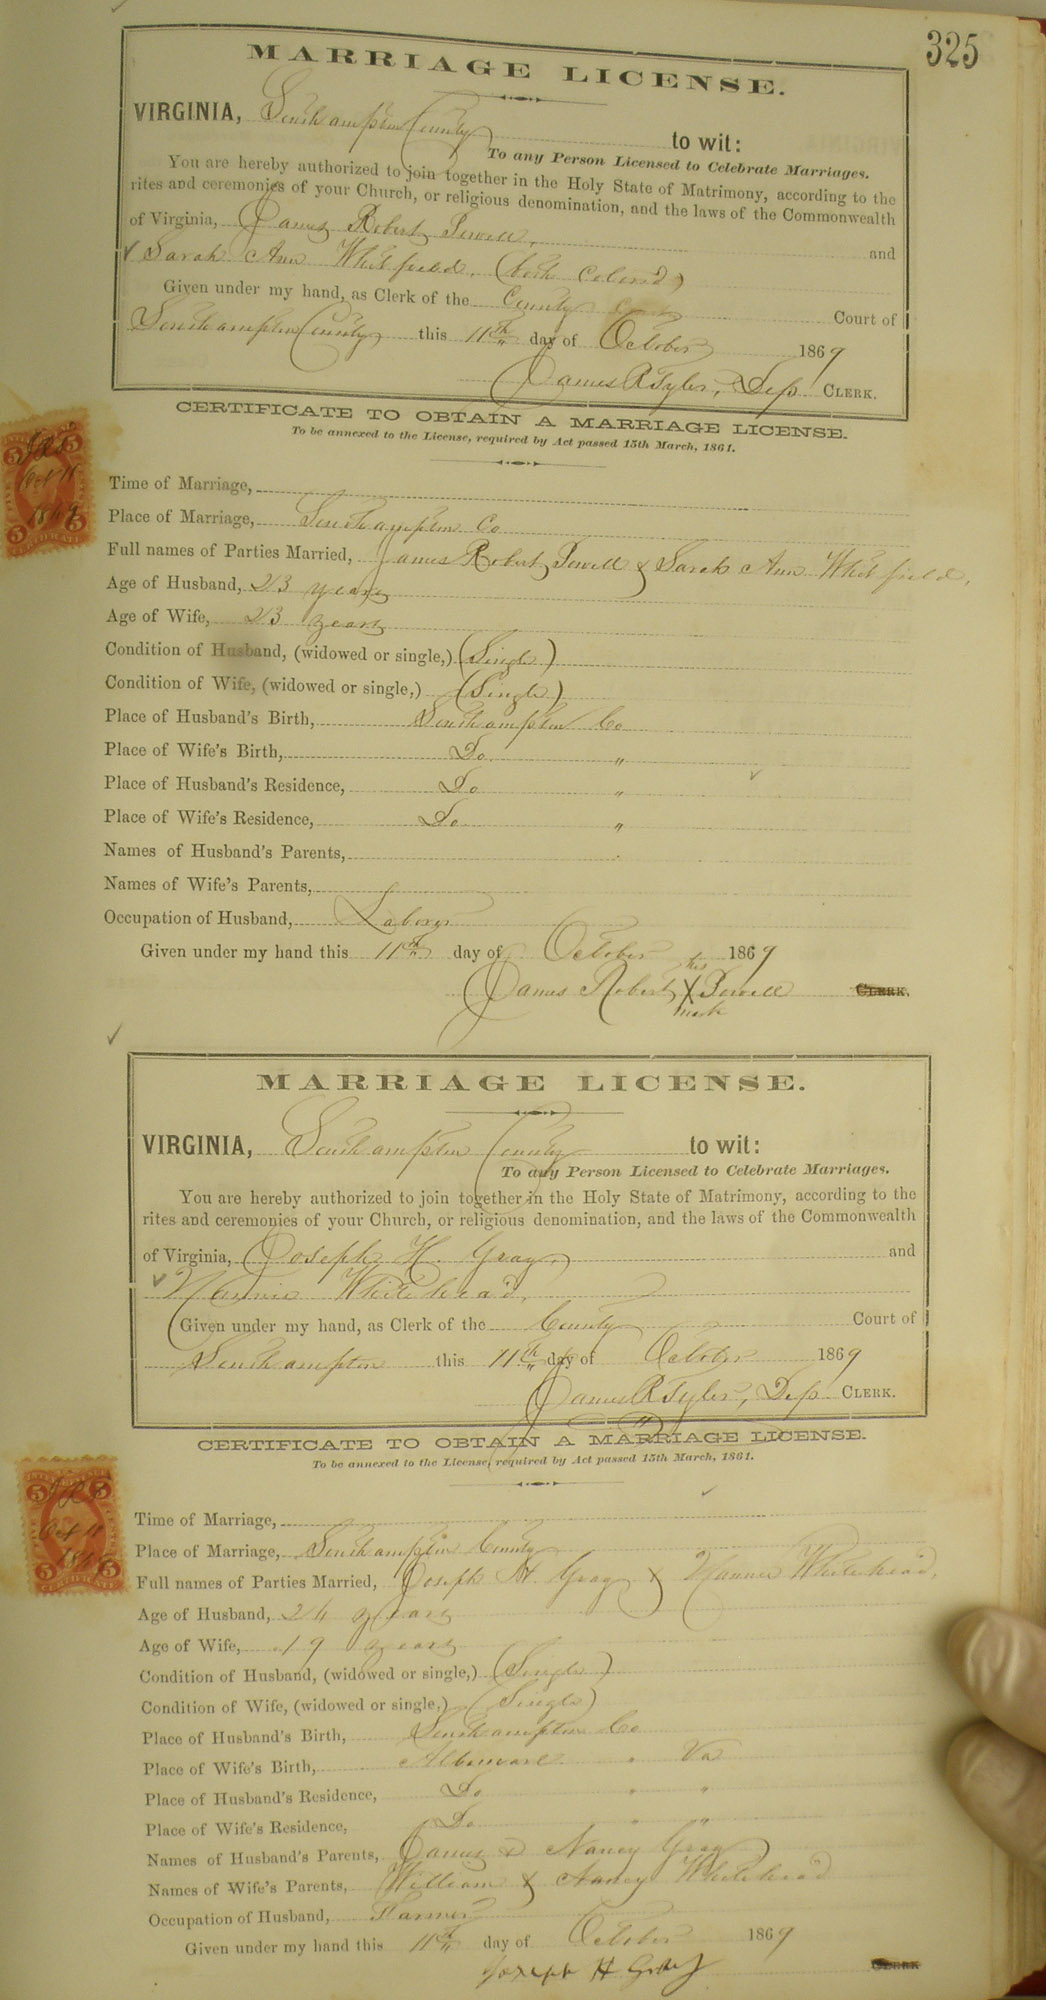 325
MARRIAGE LICENSE.
VIRGINIA, Southampton County to wit:
To any Person Licensed to Celebrate Marriages.
You are hereby authorized to join together in the Holy State of Matrimony, according to the
rites and ceremonies of your Church, or religious denomination, and the laws of the Commonwealth
of Virginia, James Robert Powell, and
Sarah Ann Whitfield, (both Colored)
Given under my hand, as Clerk of the County Court of
Southampton County this 11th day of October 1869
James R Tyler, Dep CLERK.
CERTIFICATE TO OBTAIN A MARRIAGE LICENSE.
To be annexed to the License, required by Act passed 15th March, 1861.
5 5
Oct 11
1869
5 5
CERTIFICATE
Time of Marriage,
Place of Marriage, Southampton Co
Full names of Parties Married, James Robert Powell & Sarah Ann Whitfield,
Age of Husband, 23 years
Age of Wife, 23 years
Condition of Husband, (widowed or single,) (Single)
Condition of Wife, (widowed or single,) (Single)
Place of Husband's Birth, Southampton Co
Place of Wife's Birth, Do "
Place of Husband's Residence, Do "
Place of Wife's Residence, Do "
Names of Husband's Parents,
Names of Wife's Parents,
Occupation of Husband, Laborer
Given under my hand this 11th day of October 1869
James Robert his X mark Powell CLERK.
MARRIAGE LICENSE.
VIRGINIA, Southampton County to wit:
To any Person Licensed to Celebrate Marriages.
You are hereby authorized to join together in the Holy State of Matrimony, according to the
rites and ceremonies of your Church, or religious denomination, and the laws of the Commonwealth
of Virginia, Joseph H. Gray, and
Nannie Whitehead,
Given under my hand, as Clerk of the County Court of
Southampton this 11th day of October 1869
James R Tyler, Dep CLERK.
CERTIFICATE TO OBTAIN A MARRIAGE LICENSE.
To be annexed to the License, required by Act passed 15th March, 1861.
5 5
Oct 11
5 5
CERTIFICATE
Time of Marriage,
Place of Marriage, Southampton County
Full names of Parties Married, Joseph H. Gray & Nannie Whitehead,
Age of Husband, 24 years
Age of Wife, 19 years
Condition of Husband, (widowed or single,) (Single)
Condition of Wife, (widowed or single,) (Single)
Place of Husband's Birth, Southampton Co
Place of Wife's Birth, Va
Place of Husband's Residence, Do " "
Place of Wife's Residence, Do " "
Names of Husband's Parents, James & Nancy Gray
Names of Wife's Parents, William & Nancy Whitehead
Occupation of Husband, Farmer
Given under my hand this 11th day of October 1869
Joseph H Gray CLERK